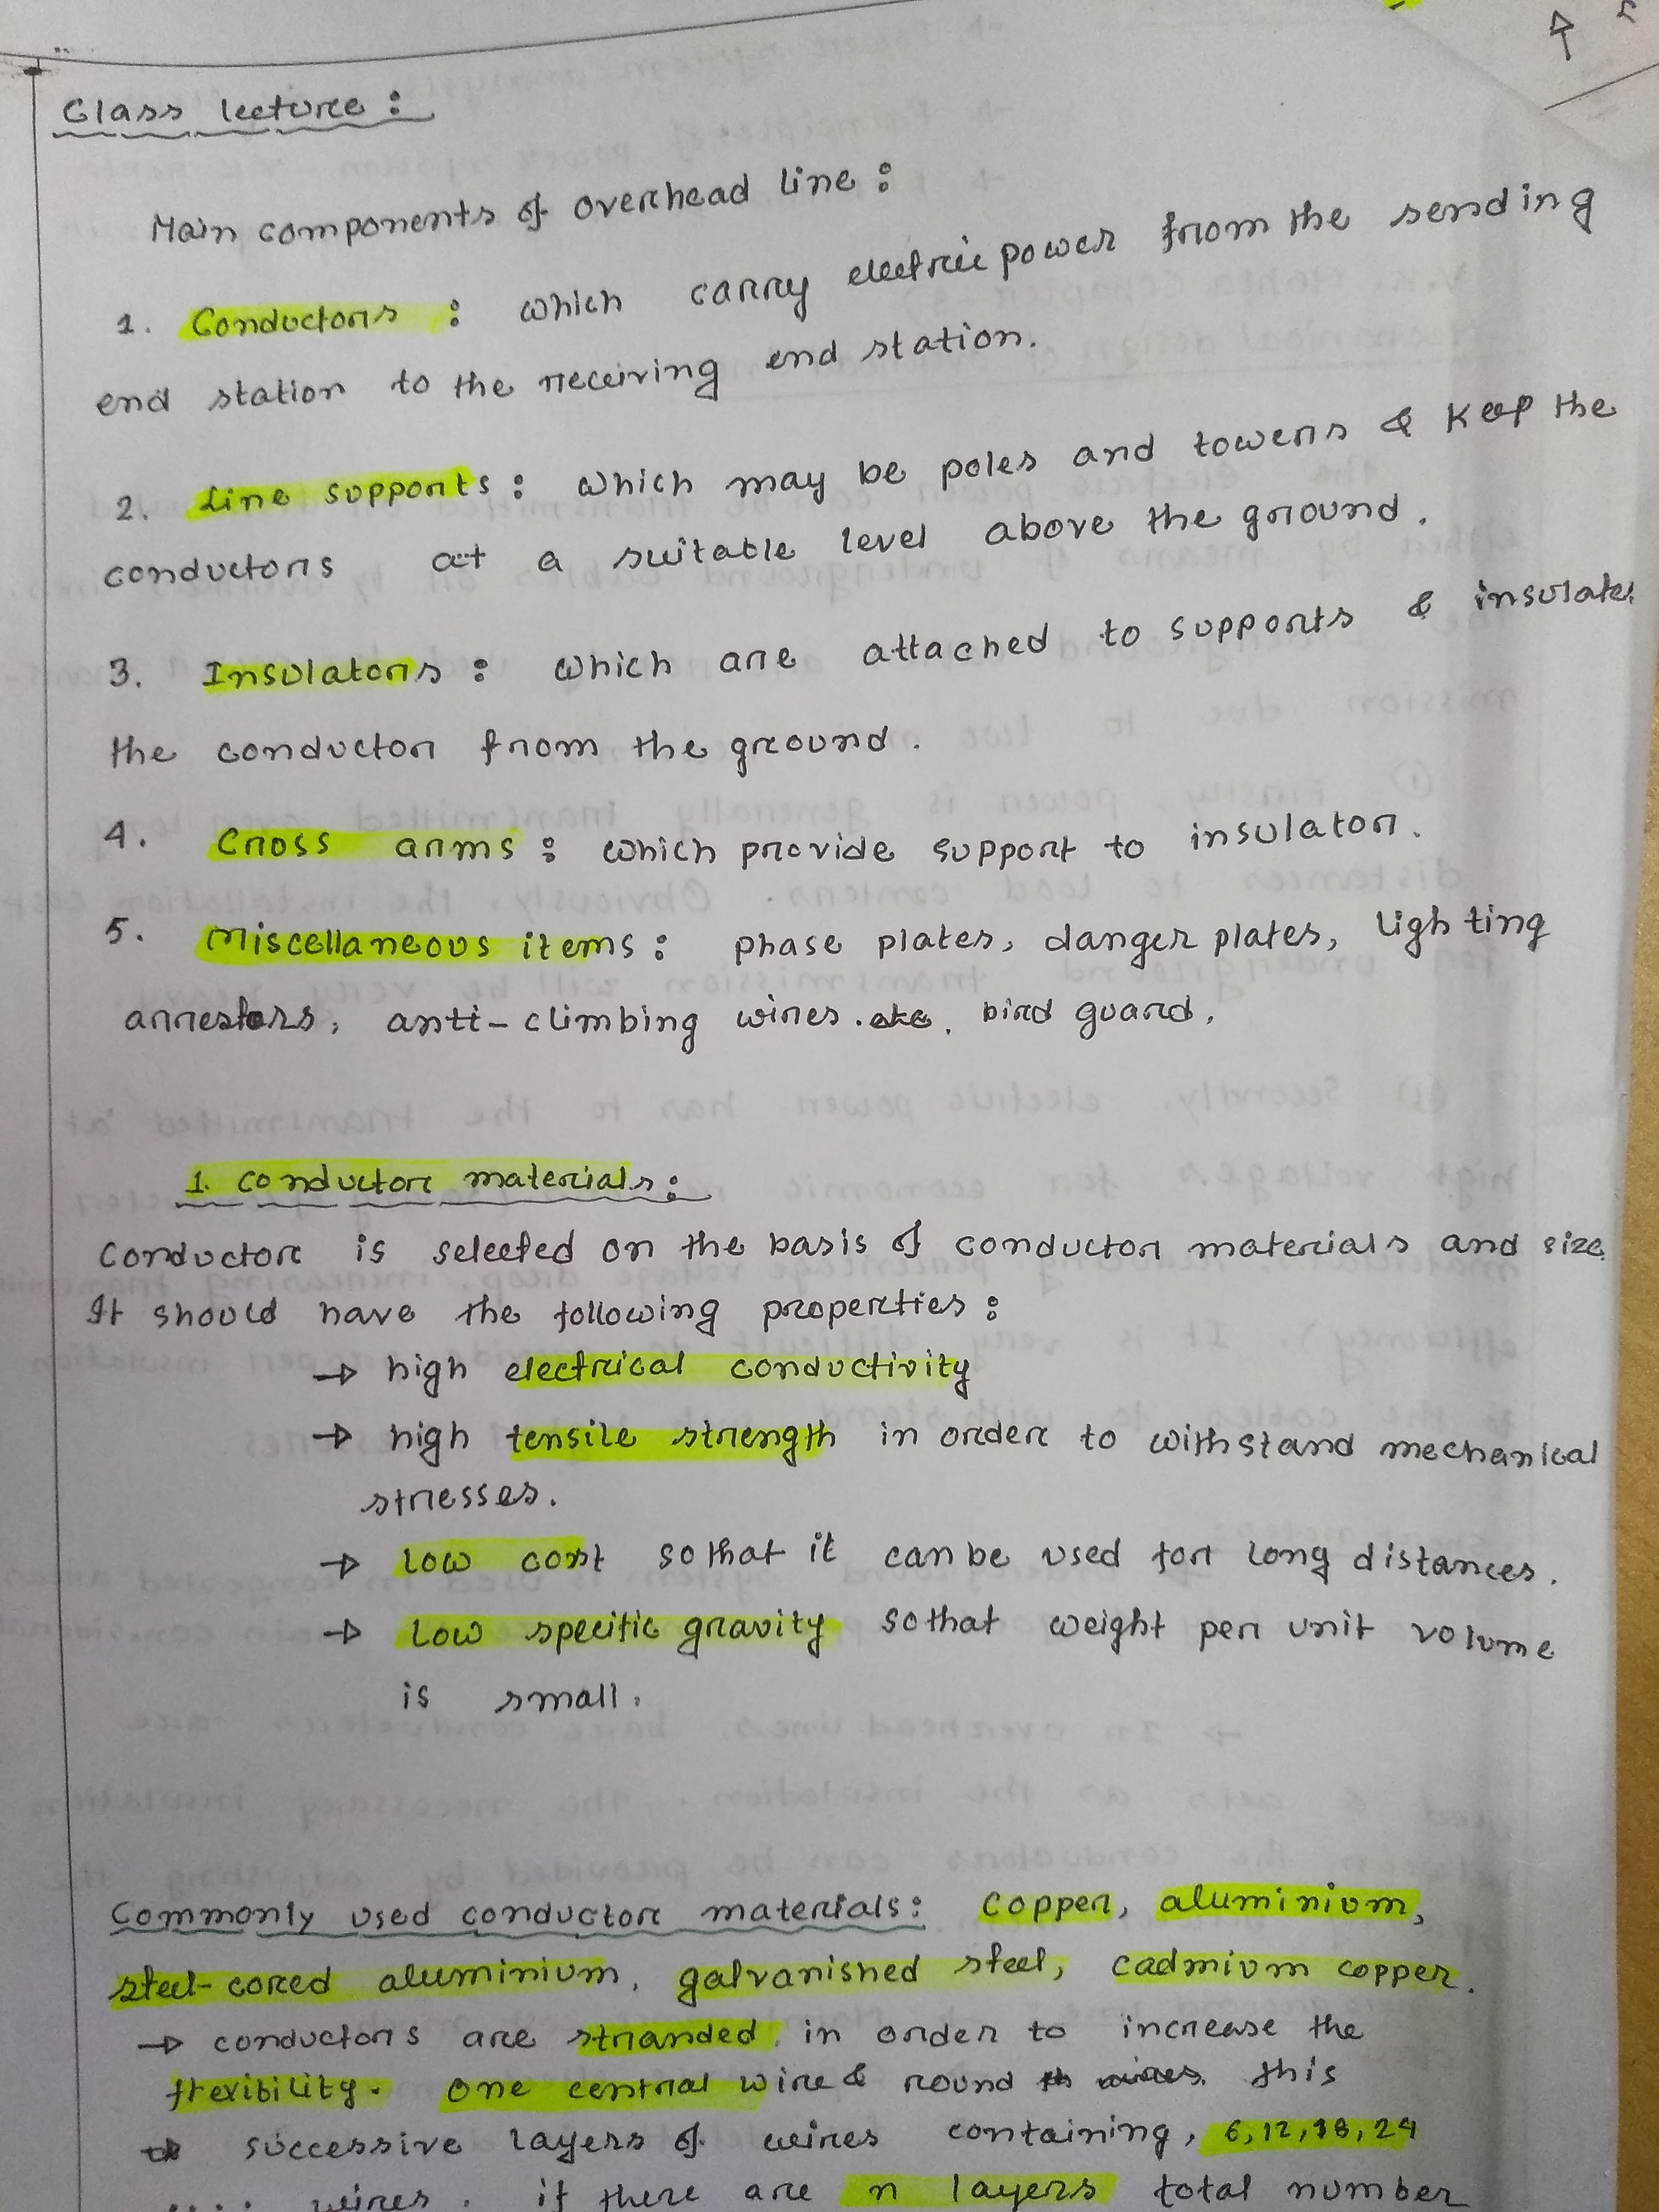 Class lecture:
Main components of overhead line:
1. Conductors : which carry electric power from the sending
end station to the receiving end station.
2. Line supports: which may be poles and towers & keep the
conductors at a suitable level above the ground.
3. Insulators : which are attached to supports & insulate
the conductor from the ground.
4. Cross arms : which provide support to insulator.
5. Miscellaneous items : phase plates, danger plates, lighting
arrestors, anti-climbing wires. etc. bird guard.
1. conductor materials:
Conductor is selected on the basis of conductor materials and size.
It should have the following properties :
→ high electrical conductivity
→ high tensile strength in order to withstand mechanical
stresses.
→ Low cost so that it can be used for long distances.
→ Low specific gravity so that weight per unit volume
is small.
Commonly used conductor materials: Copper, aluminium,
steel-cored aluminium, galvanished steel, cadmium copper.
→ conductors are stranded in order to increase the
flexibility. One central wire & round this
successive layers of wires containing, 6, 12, 18, 24
.... wires. if there are n layers total number